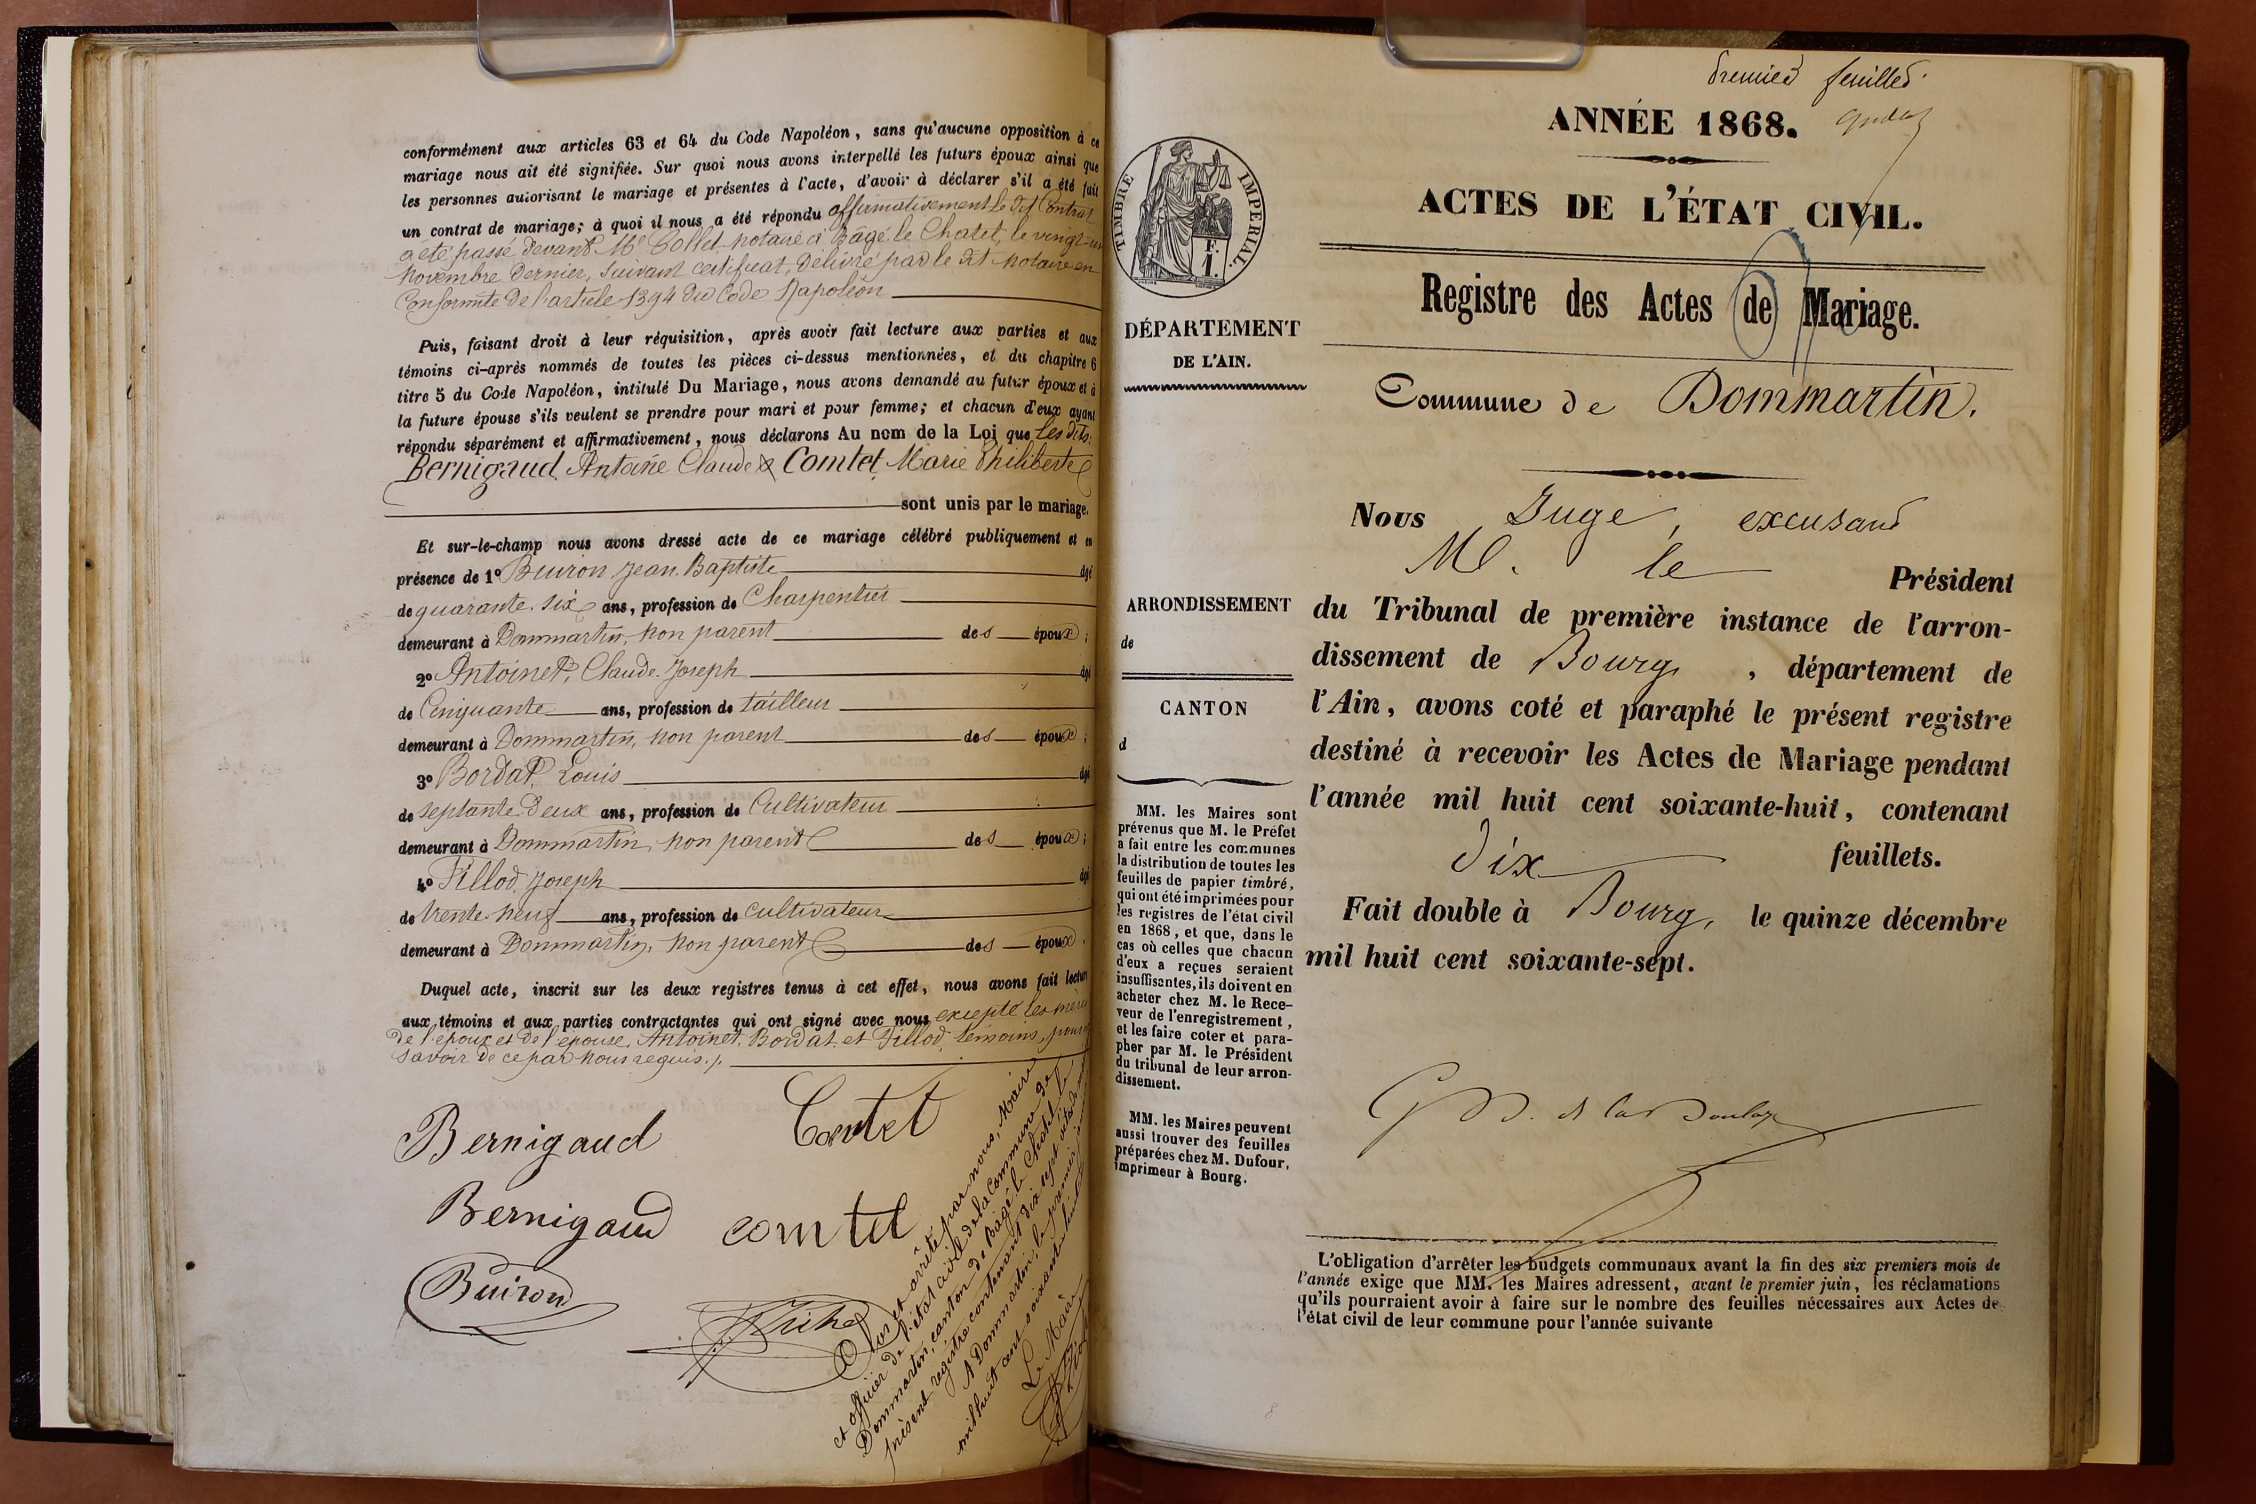 conformément aux articles 63 et 64 du Code Napoléon, sans qu'aucune opposition à ce
mariage nous ait été signifiée. Sur quoi nous avons interpellé les futurs époux ainsi que
les personnes autorisant le mariage et présentes à l'acte, d'avoir à déclarer s'il a été fait
un contrat de mariage; à quoi il nous a été répondu affirmativement le dit Contrat
a été passé devant Me Collet notaire à Bâgé le Chatel, le vingt-un
Novembre dernier, suivant certificat, délivré par le dit notaire en
Conformité de l'article 1394 du Code Napoléon
Puis, faisant droit à leur réquisition, après avoir fait lecture aux parties et aux
témoins ci-après nommés de toutes les pièces ci-dessus mentionnées, et du chapitre 6
titre 5 du Code Napoléon, intitulé Du Mariage, nous avons demandé au futur époux et à
la future épouse s'ils veulent se prendre pour mari et pour femme; et chacun d'eux ayant
répondu séparément et affirmativement, nous déclarons Au nom de la Loi que les dits
Bernigaud Antoine Claude & Comtet Marie Philiberte
sont unis par le mariage.
Et sur-le-champ nous avons dressé acte de ce mariage célébré publiquement et en
présence de 1° Buiron Jean Baptiste âgé
de quarante six ans, profession de Charpentier
demeurant à Dommartin, non parent des époux;
2° Antoinet, Claude Joseph âgé
de Cinquante ans, profession de tailleur
demeurant à Dommartin, non parent des époux;
3° Bordat, Louis âgé
de septante deux ans, profession de Cultivateur
demeurant à Dommartin, non parent des époux;
4° Fillod Joseph âgé
de trente neuf ans, profession de cultivateur
demeurant à Dommartin, non parent des époux.
Duquel acte, inscrit sur les deux registres tenus à cet effet, nous avons fait lecture
aux témoins et aux parties contractantes qui ont signé avec nous excepté les mères
de l'époux et de l'épouse, Antoinet, Bordat et Fillod témoins, pour
savoir de ce par nous requis./.
Bernigaud Comtet
Bernigaud comtet
Buiron
Clos et arrêté par nous, Maire
et officier de l'état civil de la Commune de
Dommartin, canton de Bâgé le Chatel le
présent registre contenant dix sept actes
A Dommartin, le premier
mil huit cent soixante huit
Le Maire
premier feuillet
ANNÉE 1868.
ACTES DE L'ÉTAT CIVIL.
Registre des Actes de Mariage.
Commune de Dommartin.
TIMBRE IMPERIAL.
E.
I.
DÉPARTEMENT
DE L'AIN.
ARRONDISSEMENT
de
CANTON
d
MM. les Maires sont
prévenus que M. le Préfet
a fait entre les communes
la distribution de toutes les
feuilles de papier timbré,
qui ont été imprimées pour
les registres de l'état civil
en 1868, et que, dans le
cas où celles que chacun
d'eux a reçues seraient
insuffisantes, ils doivent en
acheter chez M. le Rece-
veur de l'enregistrement,
et les faire coter et para-
pher par M. le Président
du tribunal de leur arron-
dissement.
MM. les Maires peuvent
aussi trouver des feuilles
préparées chez M. Dufour,
imprimeur à Bourg.
Nous Juge, excusant
M. le Président
du Tribunal de première instance de l'arron-
dissement de Bourg, département de
l'Ain, avons coté et paraphé le présent registre
destiné à recevoir les Actes de Mariage pendant
l'année mil huit cent soixante-huit, contenant
dix feuillets.
Fait double à Bourg, le quinze décembre
mil huit cent soixante-sept.
L'obligation d'arrêter les budgets communaux avant la fin des six premiers mois de
l'année exige que MM. les Maires adressent, avant le premier juin, les réclamations
qu'ils pourraient avoir à faire sur le nombre des feuilles nécessaires aux Actes de
l'état civil de leur commune pour l'année suivante